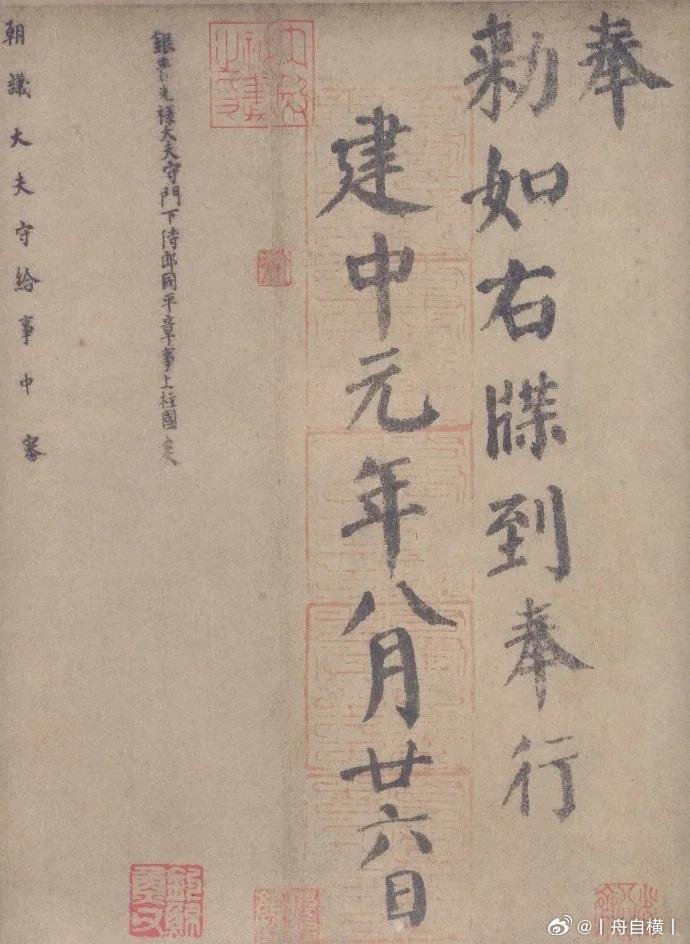 奉
勅如右牒到奉行
建中元年八月廿六日
銀青光禄大夫守門下侍郎同平章事上柱國炎
朝議大夫守給事中審
@丨舟自横丨